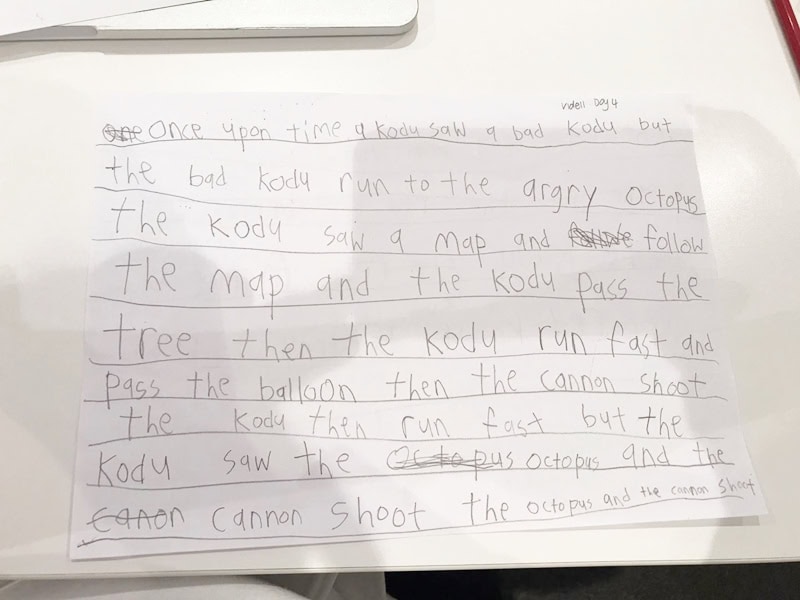 Videll Day 4
One Once upon time a Kodu saw a bad Kodu but
the bad Kodu run to the argry octopus
the Kodu saw a map and follow
the map and the Kodu pass the
tree then the Kodu run fast and
pass the balloon then the cannon shoot
the Kodu then run fast but the
Kodu saw the Octopus octopus and the
Canon cannon shoot the octopus and the cannon shoot